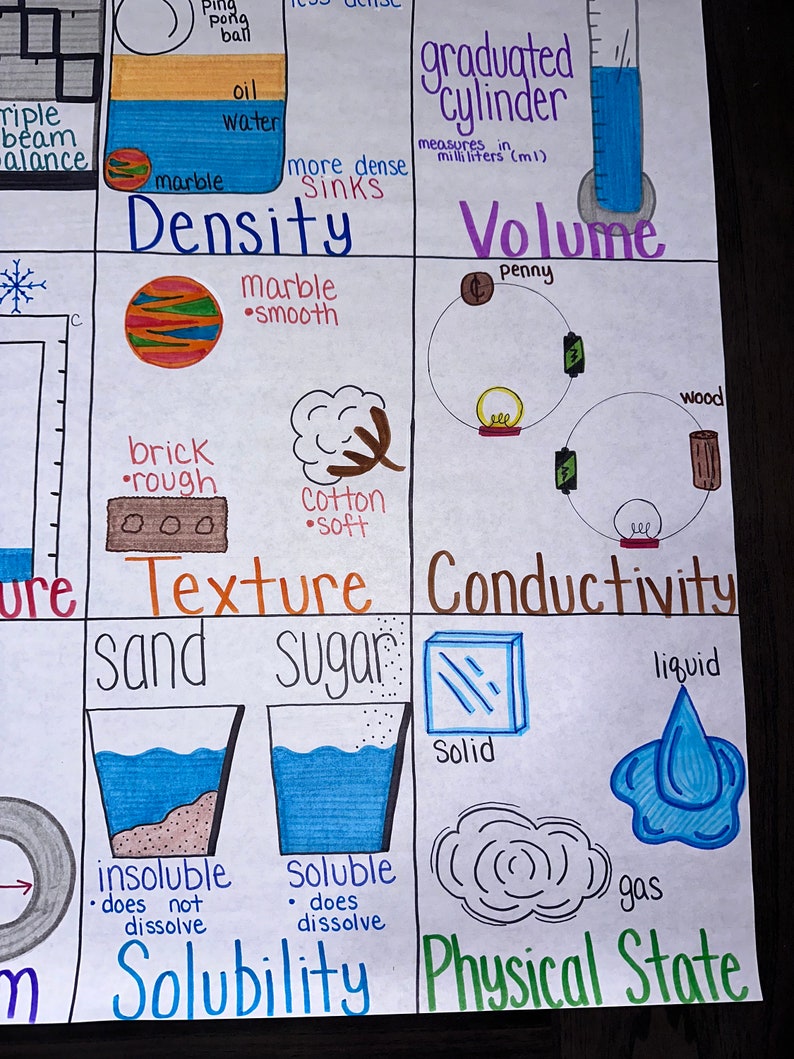 ping
pong
ball
less dense
oil
water
marble
more dense
sinks
Density
graduated
cylinder
measures in
milliliters (ml)
Volume
riple
beam
alance
C
ure
marble
•smooth
brick
•rough
cotton
•soft
Texture
penny
¢
wood
Conductivity
m
sand
sugar
insoluble
• does not
dissolve
soluble
• does
dissolve
Solubility
solid
liquid
gas
Physical State